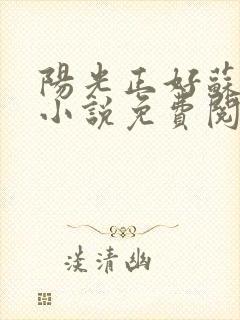 陽光正好蘇
小說免費閱
淡清幽